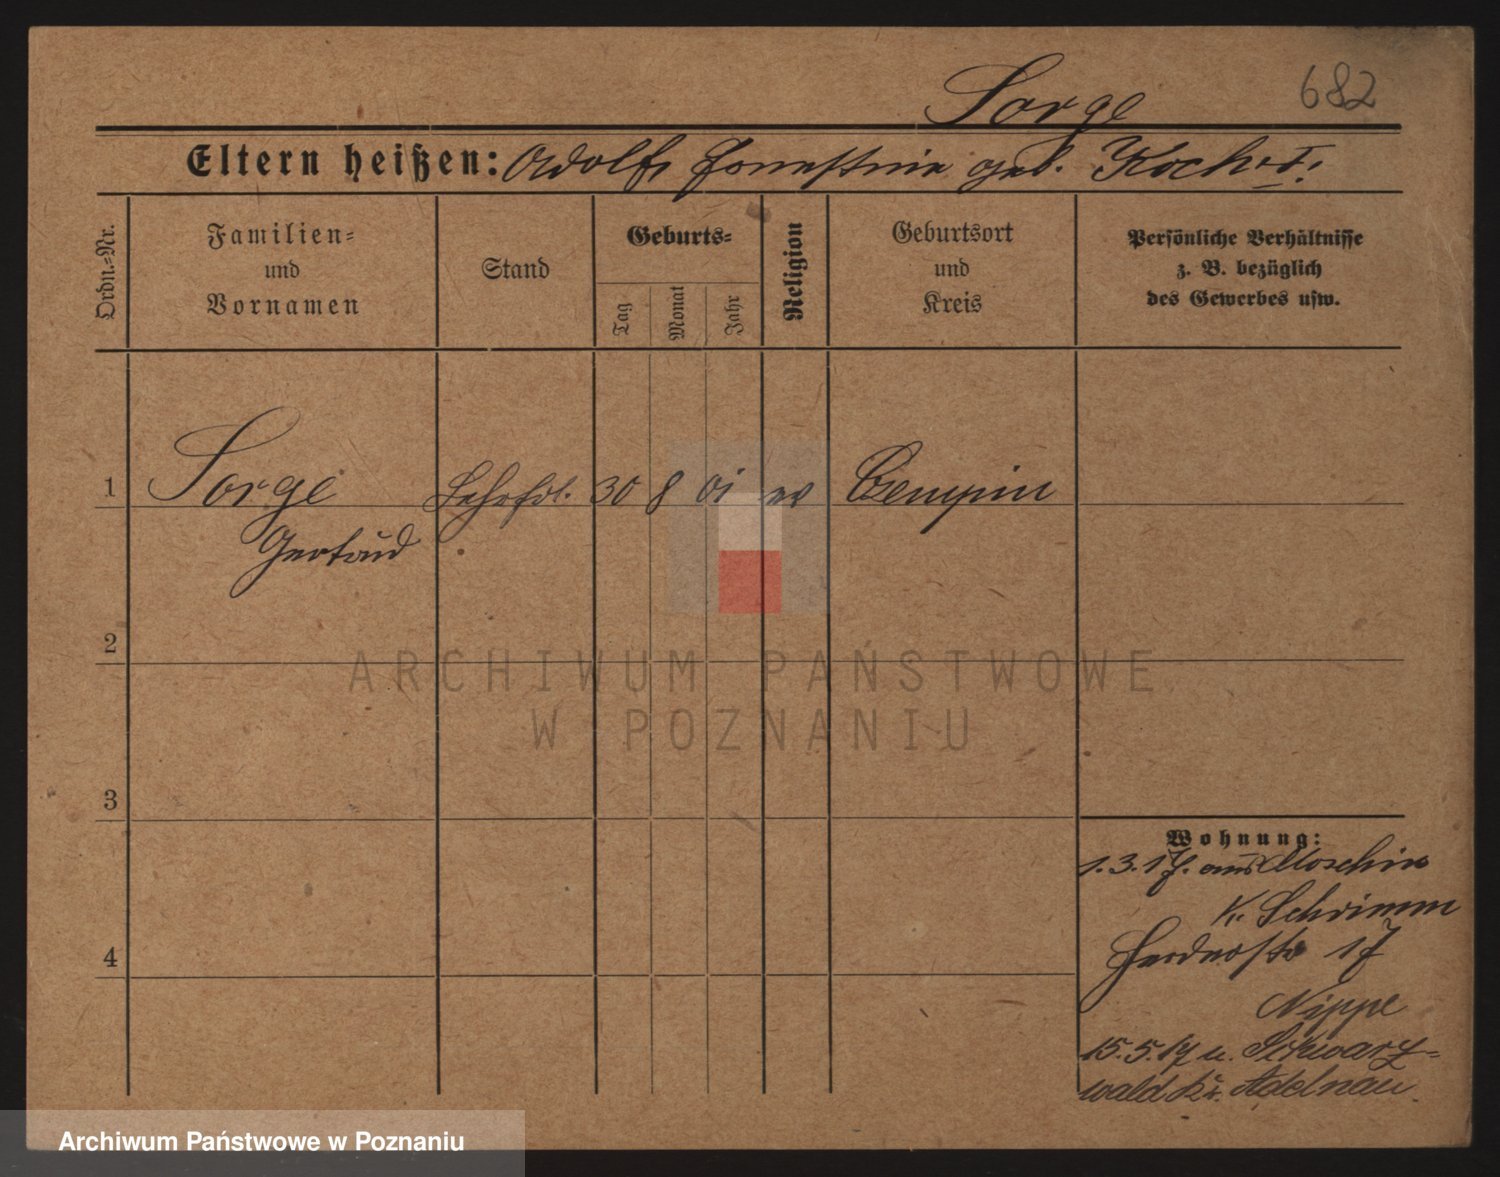 Sorge 682
Eltern heißen: Adolf, Ernestine geb. Koch
Ordn.-Nr.
Familien-
und
Vornamen
Stand
Geburts-
Tag
Monat
Jahr
Religion
Geburtsort
und
Kreis
Persönliche Verhältnisse
z. B. bezüglich
des Gewerbes usw.
1 Sorge 30 8 01 ev Czempin
Gertrud
2
3
4
Wohnung:
1.3.17. aus Moschin
Kr. Schrimm
17
Nippe
15.5.17 n. Schwarz-
wald Kr. Adelnau.
ARCHIWUM PAŃSTWOWE
W POZNANIU
Archiwum Państwowe w Poznaniu